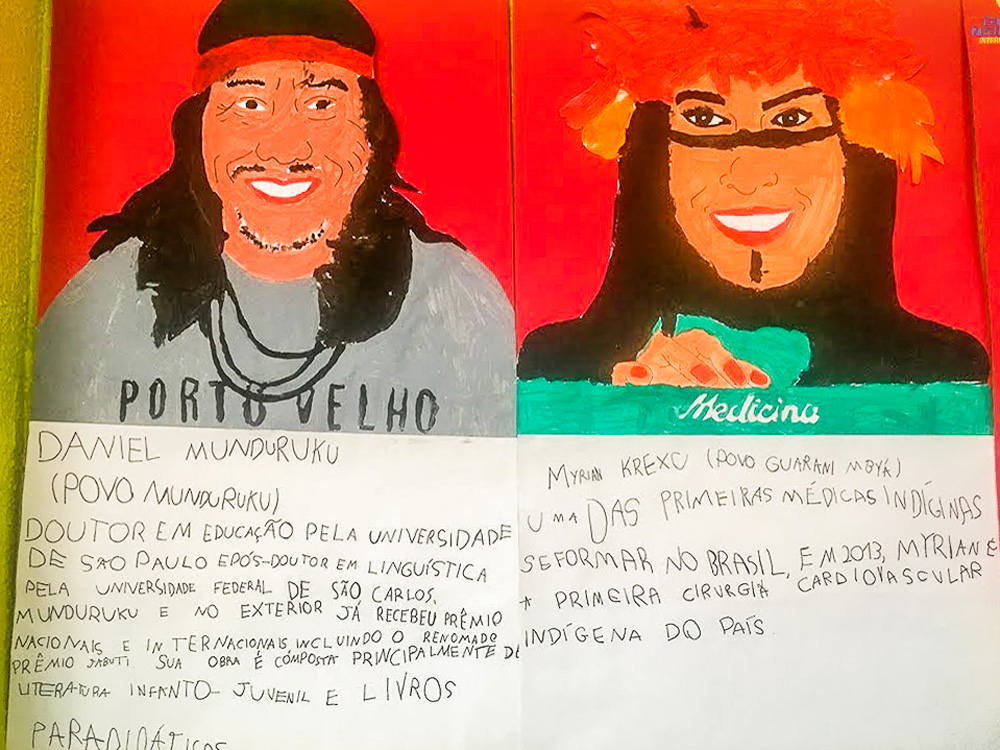 PORTO VELHO
DANIEL MUNDURUKU
(POVO MUNDURUKU)
DOUTOR EM EDUCAÇÃO PELA UNIVERSIDADE
DE SÃO PAULO EPÓS-DOUTOR EM LINGUÍSTICA
PELA UNIVERSIDADE FEDERAL DE SÃO CARLOS,
MUNDURUKU E NO EXTERIOR JÁ RECEBEU PRÊMIO
NACIONAIS E INTERNACIONAIS INCLUINDO O RENOMADO
PRÊMIO JABUTI. SUA OBRA É COMPOSTA PRINCIPALMENTE DE
LITERATURA INFANTO-JUVENIL E LIVROS
PARADIDÁTICOS
Medicina
MYRIAN KREXU (POVO GUARANI MBYÁ)
UMA DAS PRIMEIRAS MÉDICAS INDÍGINAS
SEFORMAR NO BRASIL, EM 2013, MYRIAN É
A PRIMEIRA CIRURGIÃ CARDIOVASCULAR
INDÍGENA DO PAÍS.